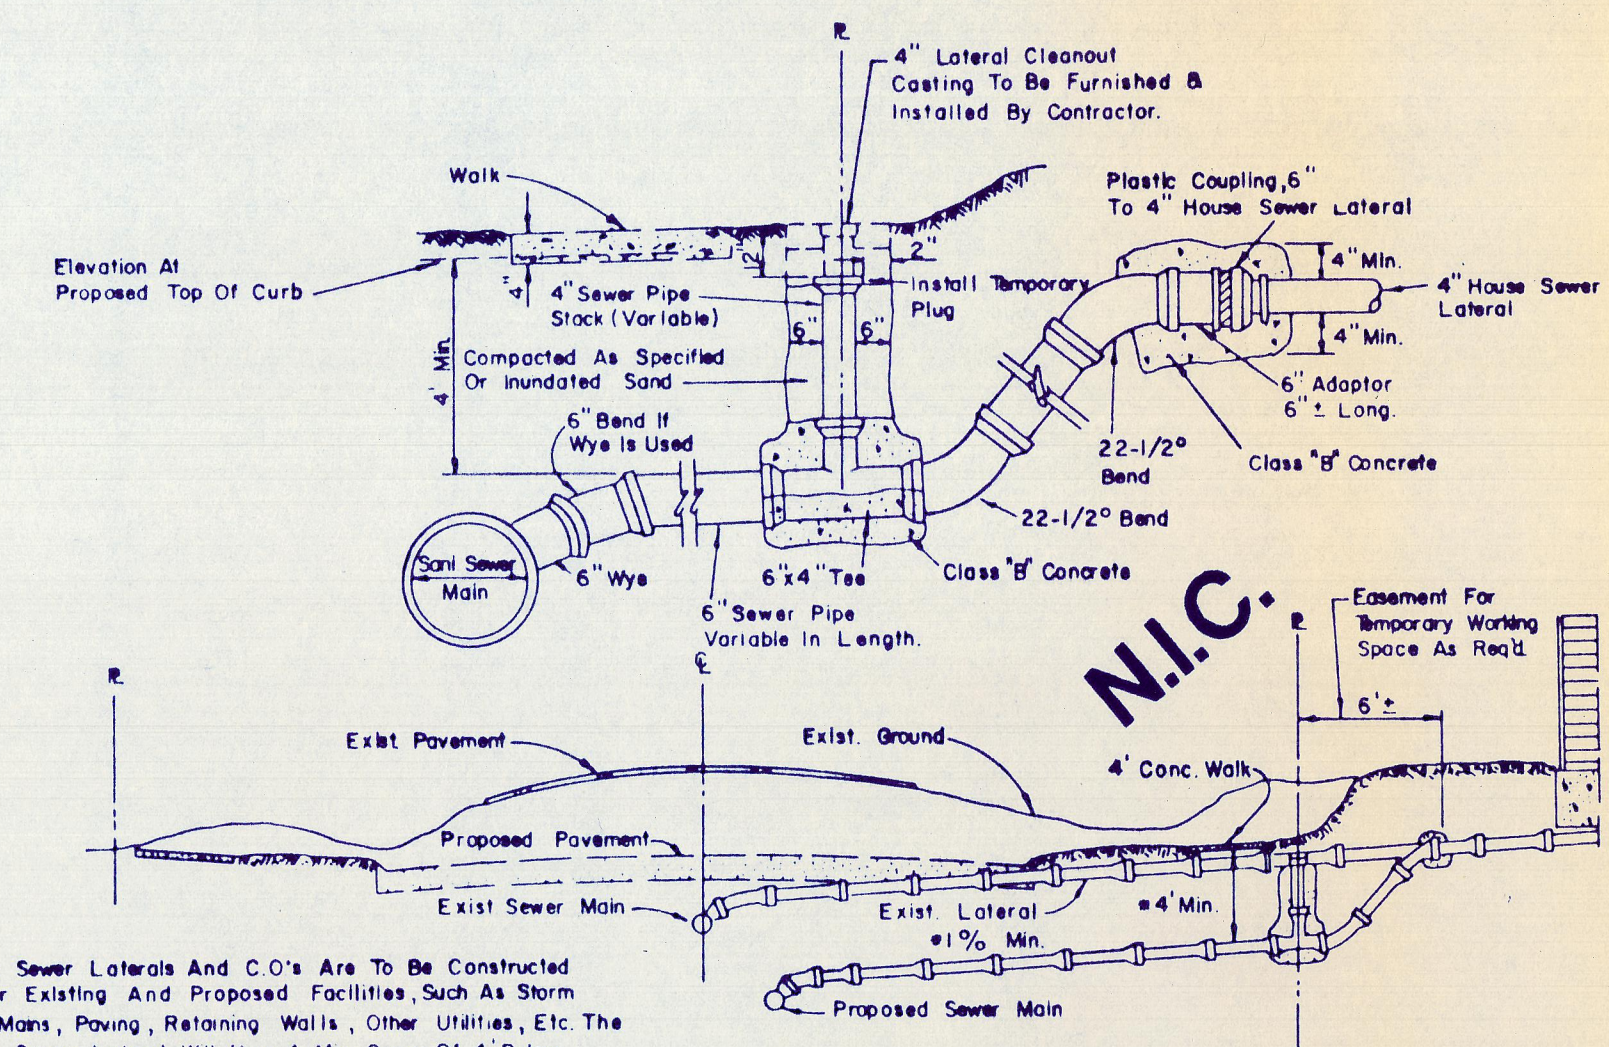 PL
4" Lateral Cleanout
Casting To Be Furnished &
Installed By Contractor.
Walk
Plastic Coupling, 6"
To 4" House Sewer Lateral
Elevation At
Proposed Top Of Curb
4"
12"
2"
4" Min.
4" House Sewer
Lateral
4" Sewer Pipe
Stack (Variable)
Install Temporary
Plug
6"
6"
4" Min.
4' Min.
Compacted As Specified
Or Inundated Sand
6" Adaptor
6" ± Long.
6" Bend If
Wye Is Used
22-1/2°
Bend
Class "B" Concrete
22-1/2° Bend
Sani Sewer
Main
6" Wye
6"x4" Tee
Class "B" Concrete
6" Sewer Pipe
Variable In Length.
N.I.C.
Easement For
Temporary Working
Space As Req'd.
PL
CL
PL
6' ±
Exist. Pavement
Exist. Ground
4' Conc. Walk
Proposed Pavement
Exist Sewer Main
Exist. Lateral
*4' Min.
*1% Min.
Proposed Sewer Main
Sewer Laterals And C.O's Are To Be Constructed
r Existing And Proposed Facilities, Such As Storm
Mains, Paving, Retaining Walls, Other Utilities, Etc. The